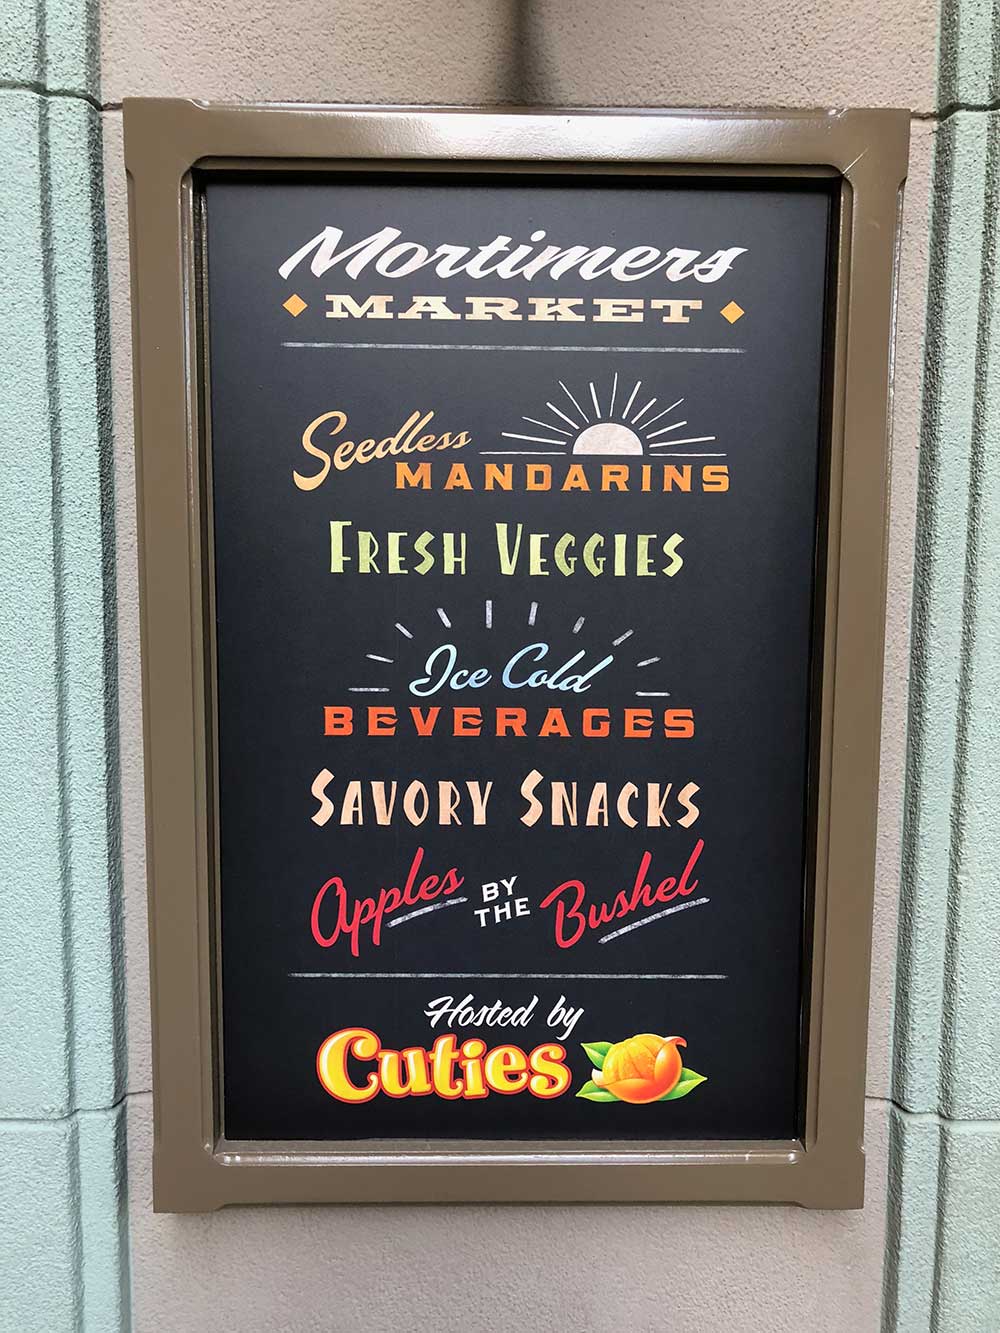 Mortimers
MARKET
Seedless
MANDARINS
FRESH VEGGIES
Ice Cold
BEVERAGES
SAVORY SNACKS
Apples BY THE Bushel
Hosted by
Cuties